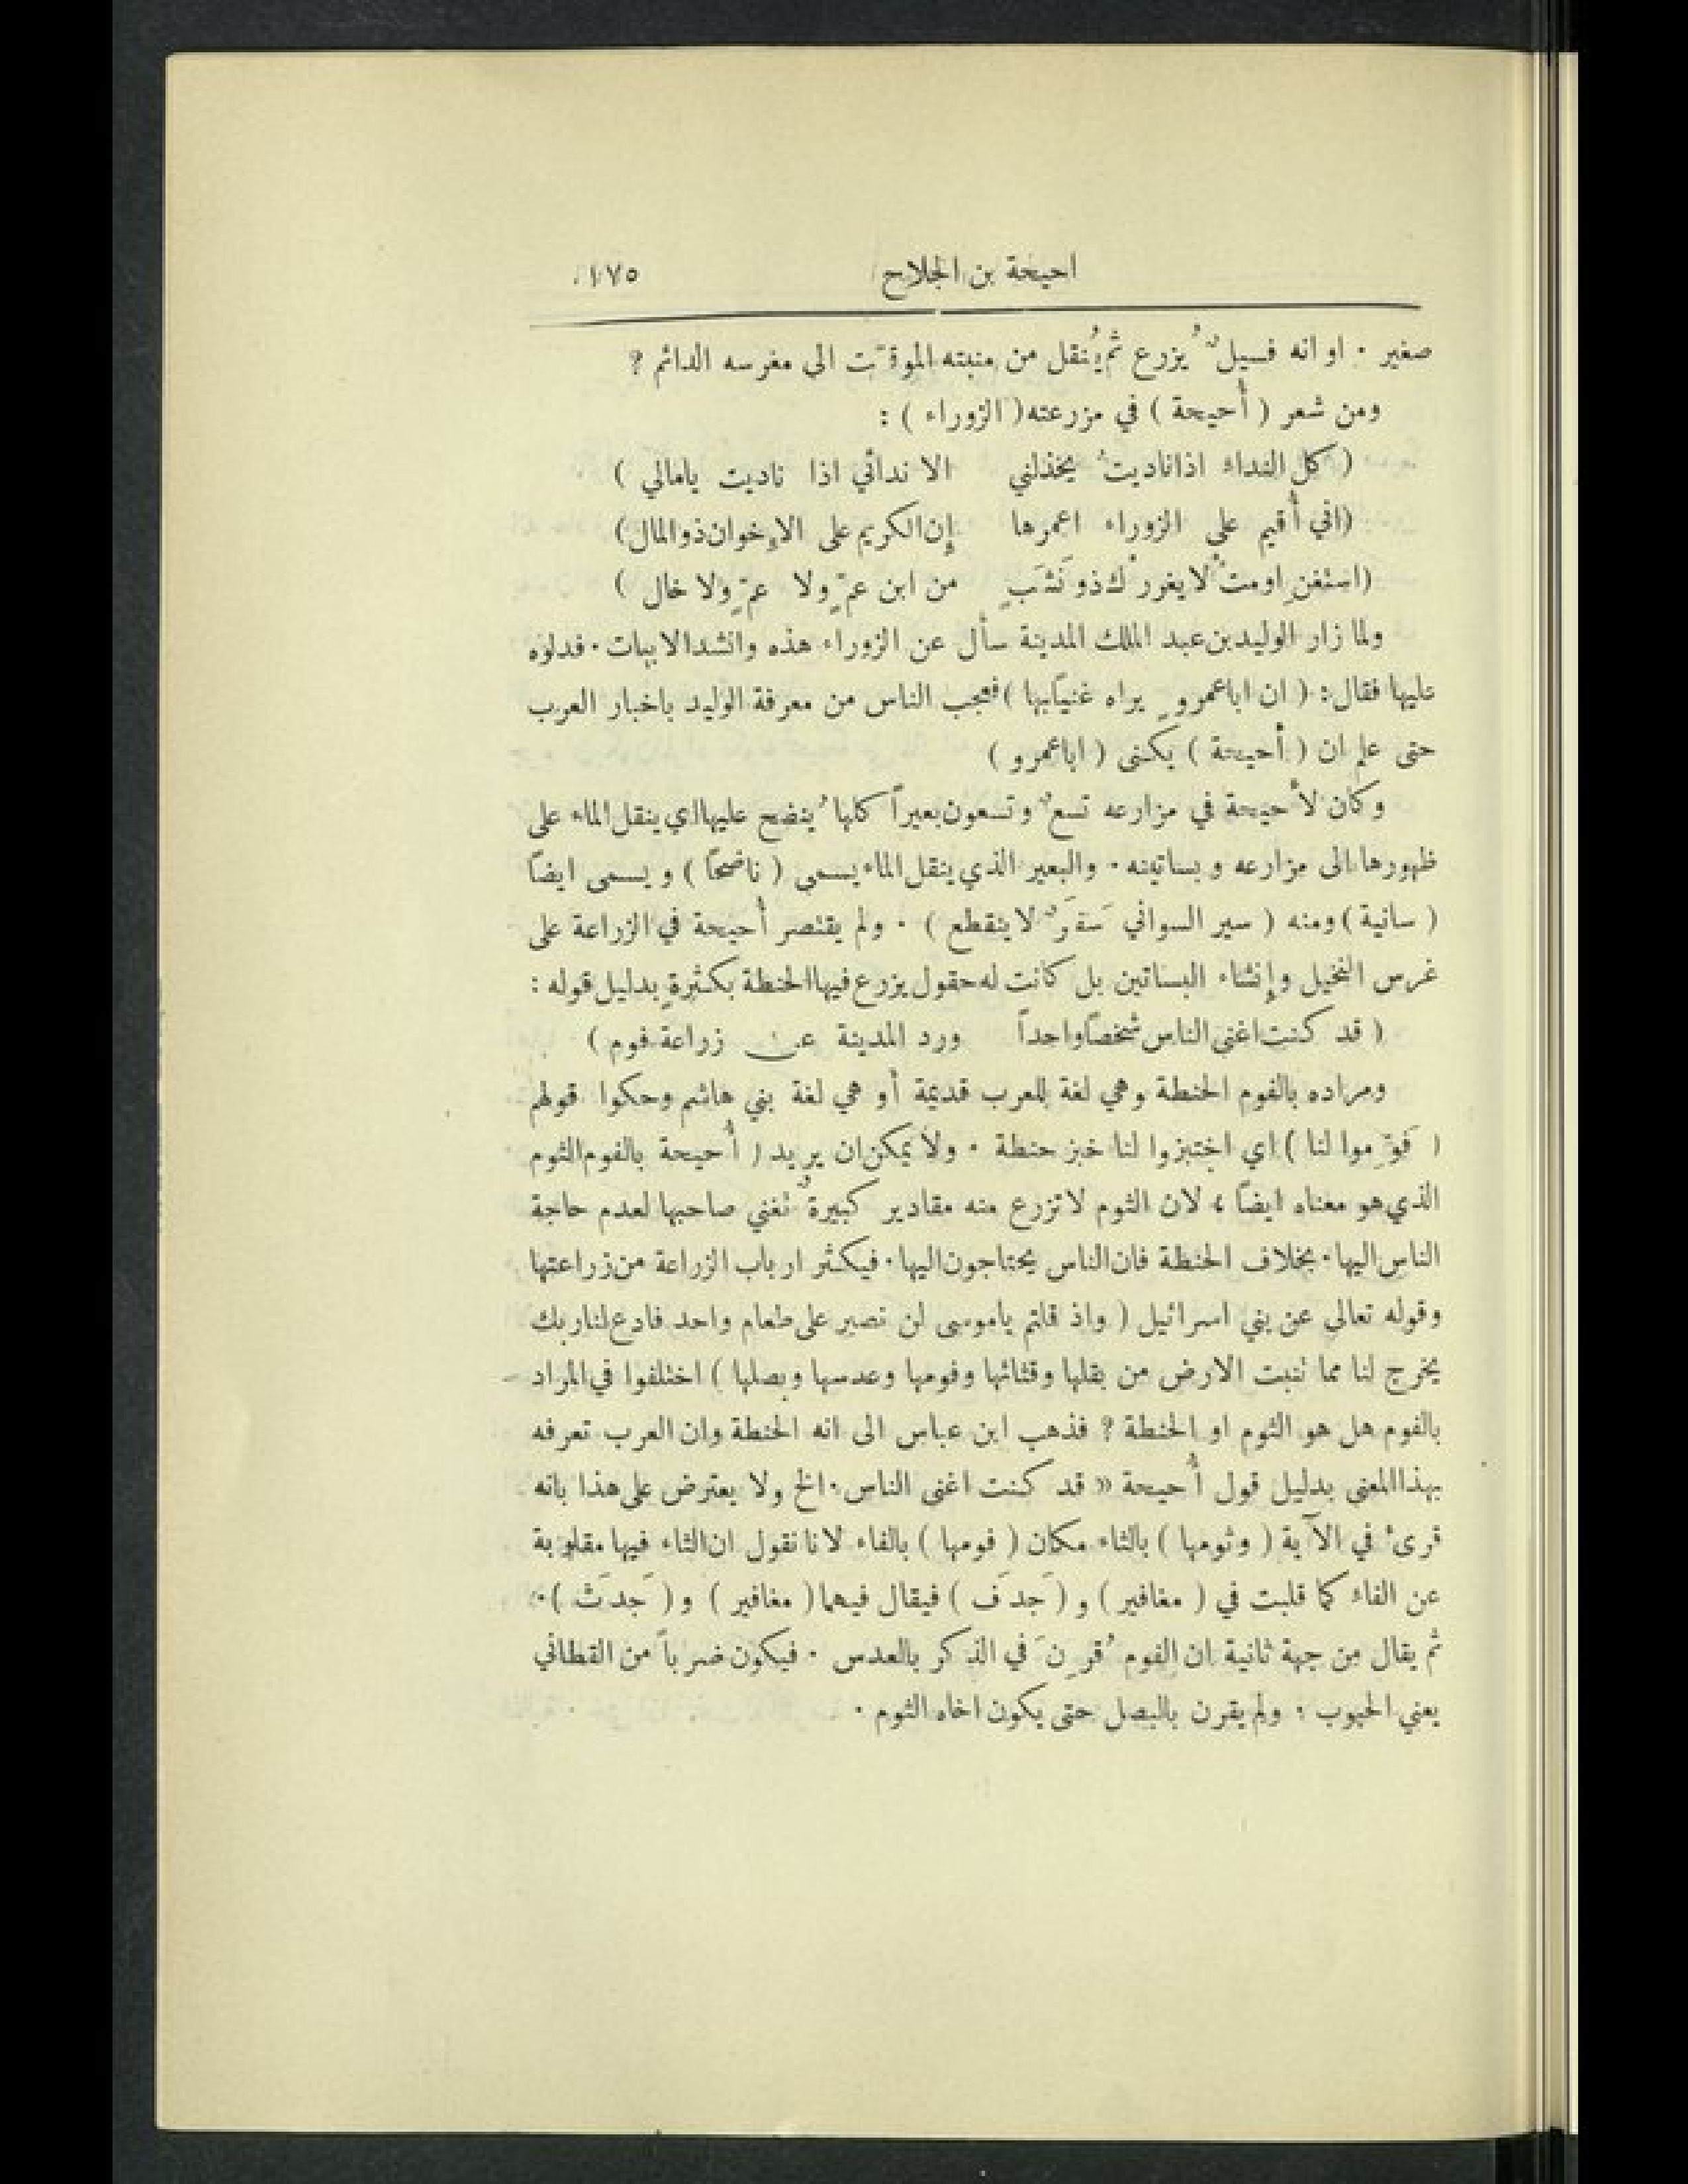 احيحة بن الجلاح ١٧٥
صغير . او انه فسيلٌ يُزرع ثم يُنقل من منبته الموقَّت الى مغرسه الدائم ؟
ومن شعر ( أُحيحة ) في مزرعته ( الزوراء ) :
( كل النداء اذا ناديتُ يخذلني الا ندائي اذا ناديت يامالي )
( اني أُقيم على الزوراء اعمرها إن الكريم على الإخوان ذو المال )
( استغنِ او متْ لا يغررْك ذو نَشَبٍ من ابن عمٍّ ولا عمٍّ ولا خال )
ولما زار الوليد بن عبد الملك المدينة سأل عن الزوراء هذه وانشد الابيات . فدلوه
عليها فقال : ( ان ابا عمروٍ يراه غنيًا بها ) فعجب الناس من معرفة الوليد باخبار العرب
حتى علم ان ( أُحيحة ) يكنى ( ابا عمرو )
وكان لأُحيحة في مزارعه تسعٌ وتسعون بعيراً كلها يُنضح عليها اي ينقل الماء على
ظهورها الى مزارعه وبساتينه . والبعير الذي ينقل الماء يسمى ( ناضحًا ) ويسمى ايضًا
( سانية ) ومنه ( سير السواني سَفَرٌ لا ينقطع ) . ولم يقتصر أُحيحة في الزراعة على
غرس النخيل وإنشاء البساتين بل كانت له حقول يزرع فيها الحنطة بكثرةٍ بدليل قوله :
( قد كنت اغنى الناس شخصًا واحداً ورد المدينة عن زراعة فوم )
ومراده بالفوم الحنطة وهي لغة للعرب قديمة أو هي لغة بني هاشم وحكوا قولهم
( فَوِّموا لنا ) اي اختبزوا لنا خبز حنطة . ولا يمكن ان يريد ( أُحيحة بالفوم الثوم
الذي هو معناه ايضًا ؛ لان الثوم لا تزرع منه مقادير كبيرةٌ تغني صاحبها لعدم حاجة
الناس اليها . بخلاف الحنطة فان الناس يحتاجون اليها . فيكثر ارباب الزراعة من زراعتها
وقوله تعالى عن بني اسرائيل ( واذ قلتم ياموسى لن نصبر على طعام واحد فادع لنا ربك
يخرج لنا مما تنبت الارض من بقلها وقثائها وفومها وعدسها وبصلها ) اختلفوا في المراد
بالفوم هل هو الثوم او الحنطة ؟ فذهب ابن عباس الى انه الحنطة وان العرب تعرفه
بهذا المعنى بدليل قول أُحيحة « قد كنت اغنى الناس . الخ ولا يعترض على هذا بانه
قرئ في الآية ( وثومها ) بالثاء مكان ( فومها ) بالفاء لانا نقول ان الثاء فيها مقلوبة
عن الفاء كما قلبت في ( مغافير ) و ( جَدَف ) فيقال فيهما ( مغافير ) و ( جَدَث ) .
ثم يقال من جهة ثانية ان الفوم قُرِنَ في الذكر بالعدس . فيكون ضرباً من القطاني
يعني الحبوب ؛ ولم يقرن بالبصل حتى يكون اخاه الثوم .